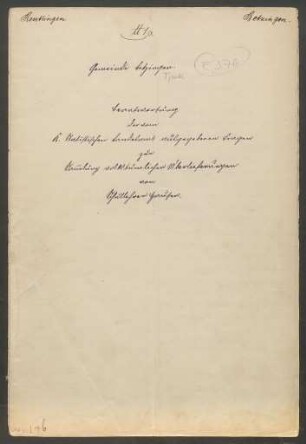 Reutlingen.
III 1a
Gemeinde Betzingen.
F 176
Beantwortung
der vom
K. Statistischen Landesamt ausgegebenen Fragen
zur
Sammlung volkstümlicher Überlieferungen
von
Schullehrer